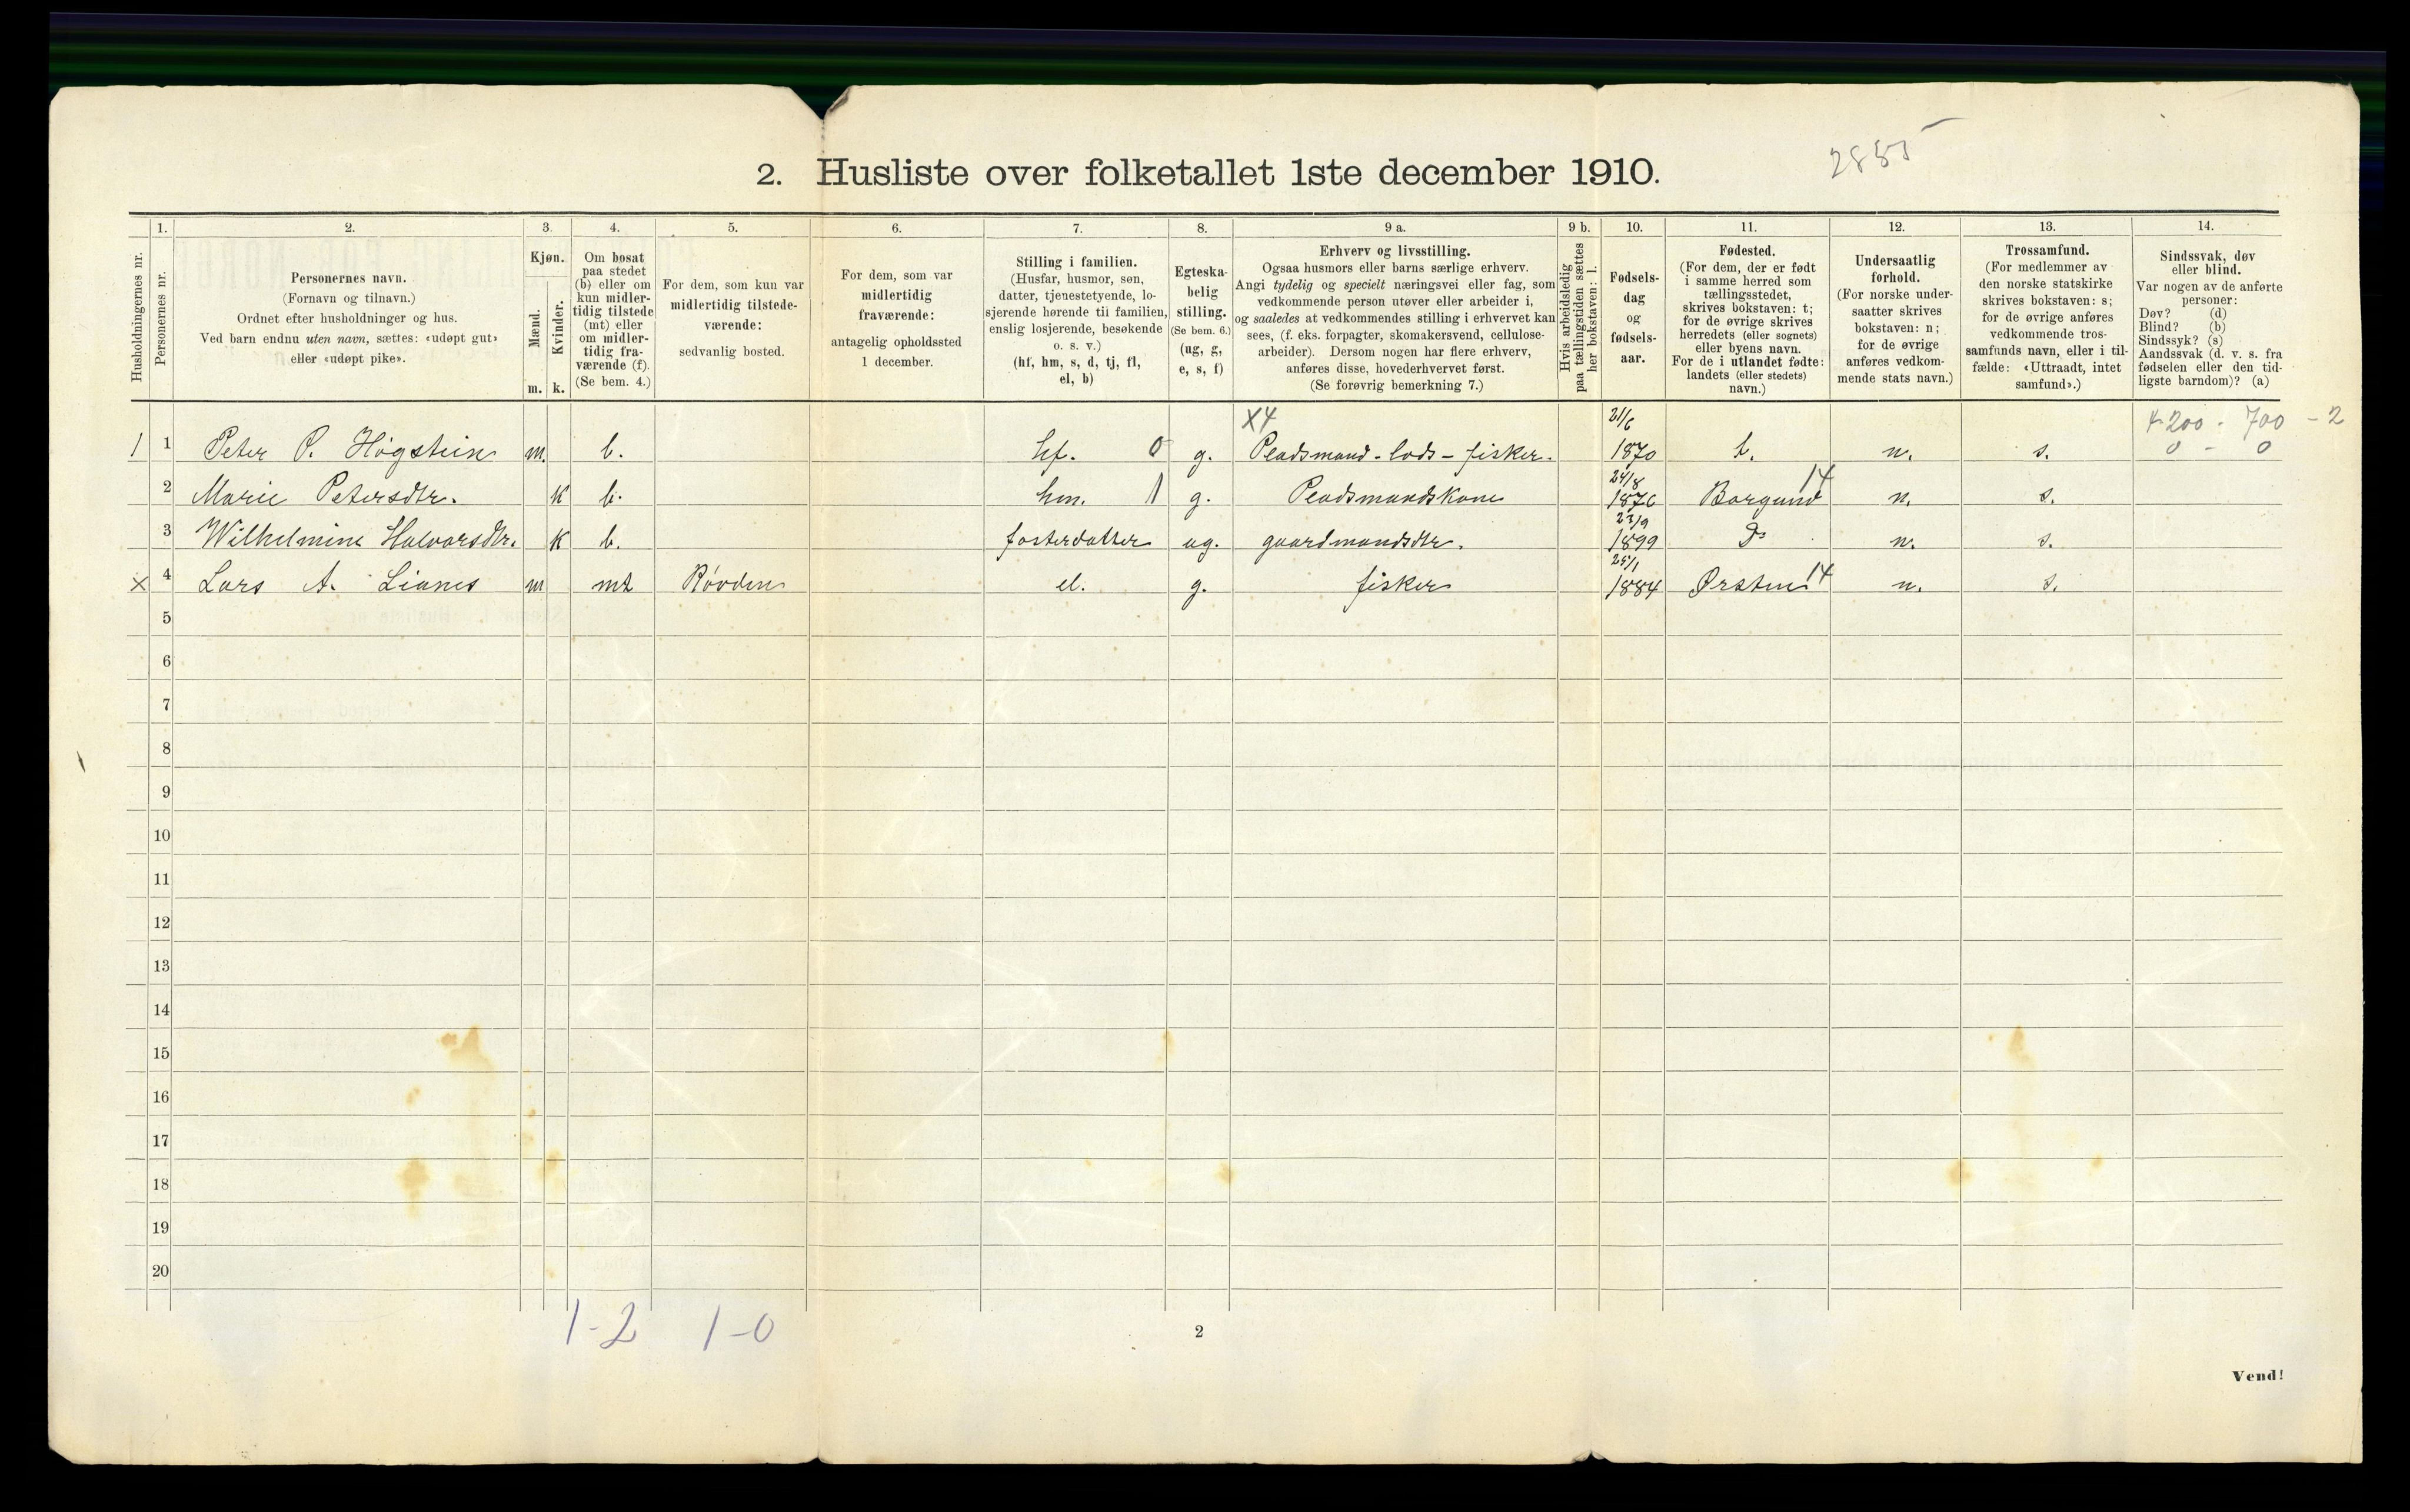 2885
2. Husliste over folketallet 1ste december 1910.
1. 2. 3. 4. 5. 6. 7. 8. 9 a. 9 b. 10. 11. 12. 13. 14.
Husholdningernes nr.
Personernes nr.
Personernes navn.
(Fornavn og tilnavn.)
Ordnet efter husholdninger og hus.
Ved barn endnu uten navn, sættes: «udøpt gut»
eller «udøpt pike».
Kjøn.
Mænd.
Kvinder.
m. k.
Om bosat
paa stedet
(b) eller om
kun midler-
tidig tilstede
(mt) eller
om midler-
tidig fra-
værende (f).
(Se bem. 4.)
For dem, som kun var
midlertidig tilstede-
værende:
sedvanlig bosted.
For dem, som var
midlertidig
fraværende:
antagelig opholdssted
1 december.
Stilling i familien.
(Husfar, husmor, søn,
datter, tjenestetyende, lo-
sjerende hørende til familien,
enslig losjerende, besøkende
o. s. v.)
(hf, hm, s, d, tj, fl,
el, b)
Egteska-
belig
stilling.
(Se bem. 6.)
(ug, g,
e, s, f)
Erhverv og livsstilling.
Ogsaa husmors eller barns særlige erhverv.
Angi tydelig og specielt næringsvei eller fag, som
vedkommende person utøver eller arbeider i,
og saaledes at vedkommendes stilling i erhvervet kan
sees, (f. eks. forpagter, skomakersvend, cellulose-
arbeider). Dersom nogen har flere erhverv,
anføres disse, hovederhvervet først.
(Se forøvrig bemerkning 7.)
Hvis arbeidsledig
paa tællingstiden sættes
her bokstaven: l.
Fødsels-
dag
og
fødsels-
aar.
Fødested.
(For dem, der er født
i samme herred som
tællingsstedet,
skrives bokstaven: t;
for de øvrige skrives
herredets (eller sognets)
eller byens navn.
For de i utlandet fødte:
landets (eller stedets)
navn.)
Undersaatlig
forhold.
(For norske under-
saatter skrives
bokstaven: n;
for de øvrige
anføres vedkom-
mende stats navn.)
Trossamfund.
(For medlemmer av
den norske statskirke
skrives bokstaven: s;
for de øvrige anføres
vedkommende tros-
samfunds navn, eller i til-
fælde: «Uttraadt, intet
samfund».)
Sindssvak, døv
eller blind.
Var nogen av de anførte
personer:
Døv? (d)
Blind? (b)
Sindssyk? (s)
Aandssvak (d. v. s. fra
fødselen eller den tid-
ligste barndom)? (a)
X4 21/6 4200 - 700 - 2
1 1 Peter P. Högstein m. b. hf. 0 g. Pladsmand - lods - fisker. 1870 t. n. s. 0 - 0
24/8 14
2 Marie Petersdtr. k b. hm. 1 g. Pladsmandskone 1876 Borgund n. s.
23/9
3 Wilhelmine Halvorsdtr. k b. fosterdatter ug. gaardmandsdtr. 1899 Do n. s.
25/1 14
x 4 Lars A. Lianes m mt Rövden el. g. fisker 1884 Ørsten n. s.
5
6
7
8
9
10
11
12
13
14
15
16
17
18
19
20
1-2 1-0
2
Vend!